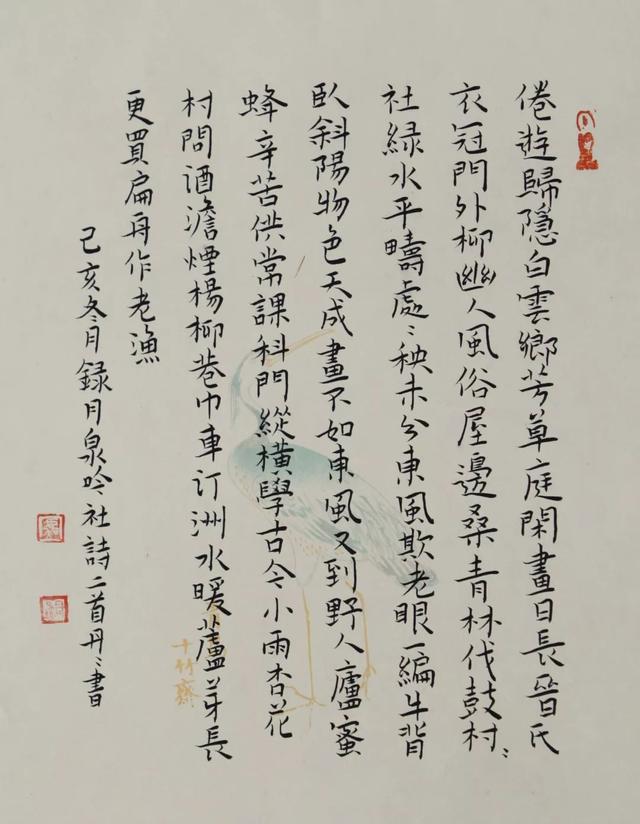 倦遊歸隱白雲鄉芳草庭閑畫日長晉氏
衣冠門外柳幽人風俗屋邊桑青林伐鼓村〻
社緑水平疇處〻秧未分東風欺老眼一編牛背
臥斜陽物色天成畫不如東風又到野人廬蜜
蜂辛苦供常課科門縱橫學古今小雨杏花
村問酒澹煙楊柳巷巾車汀洲水暖蘆芽長
更買扁舟作老漁
己亥冬月録月泉吟社詩二首丹〻書
十竹齋